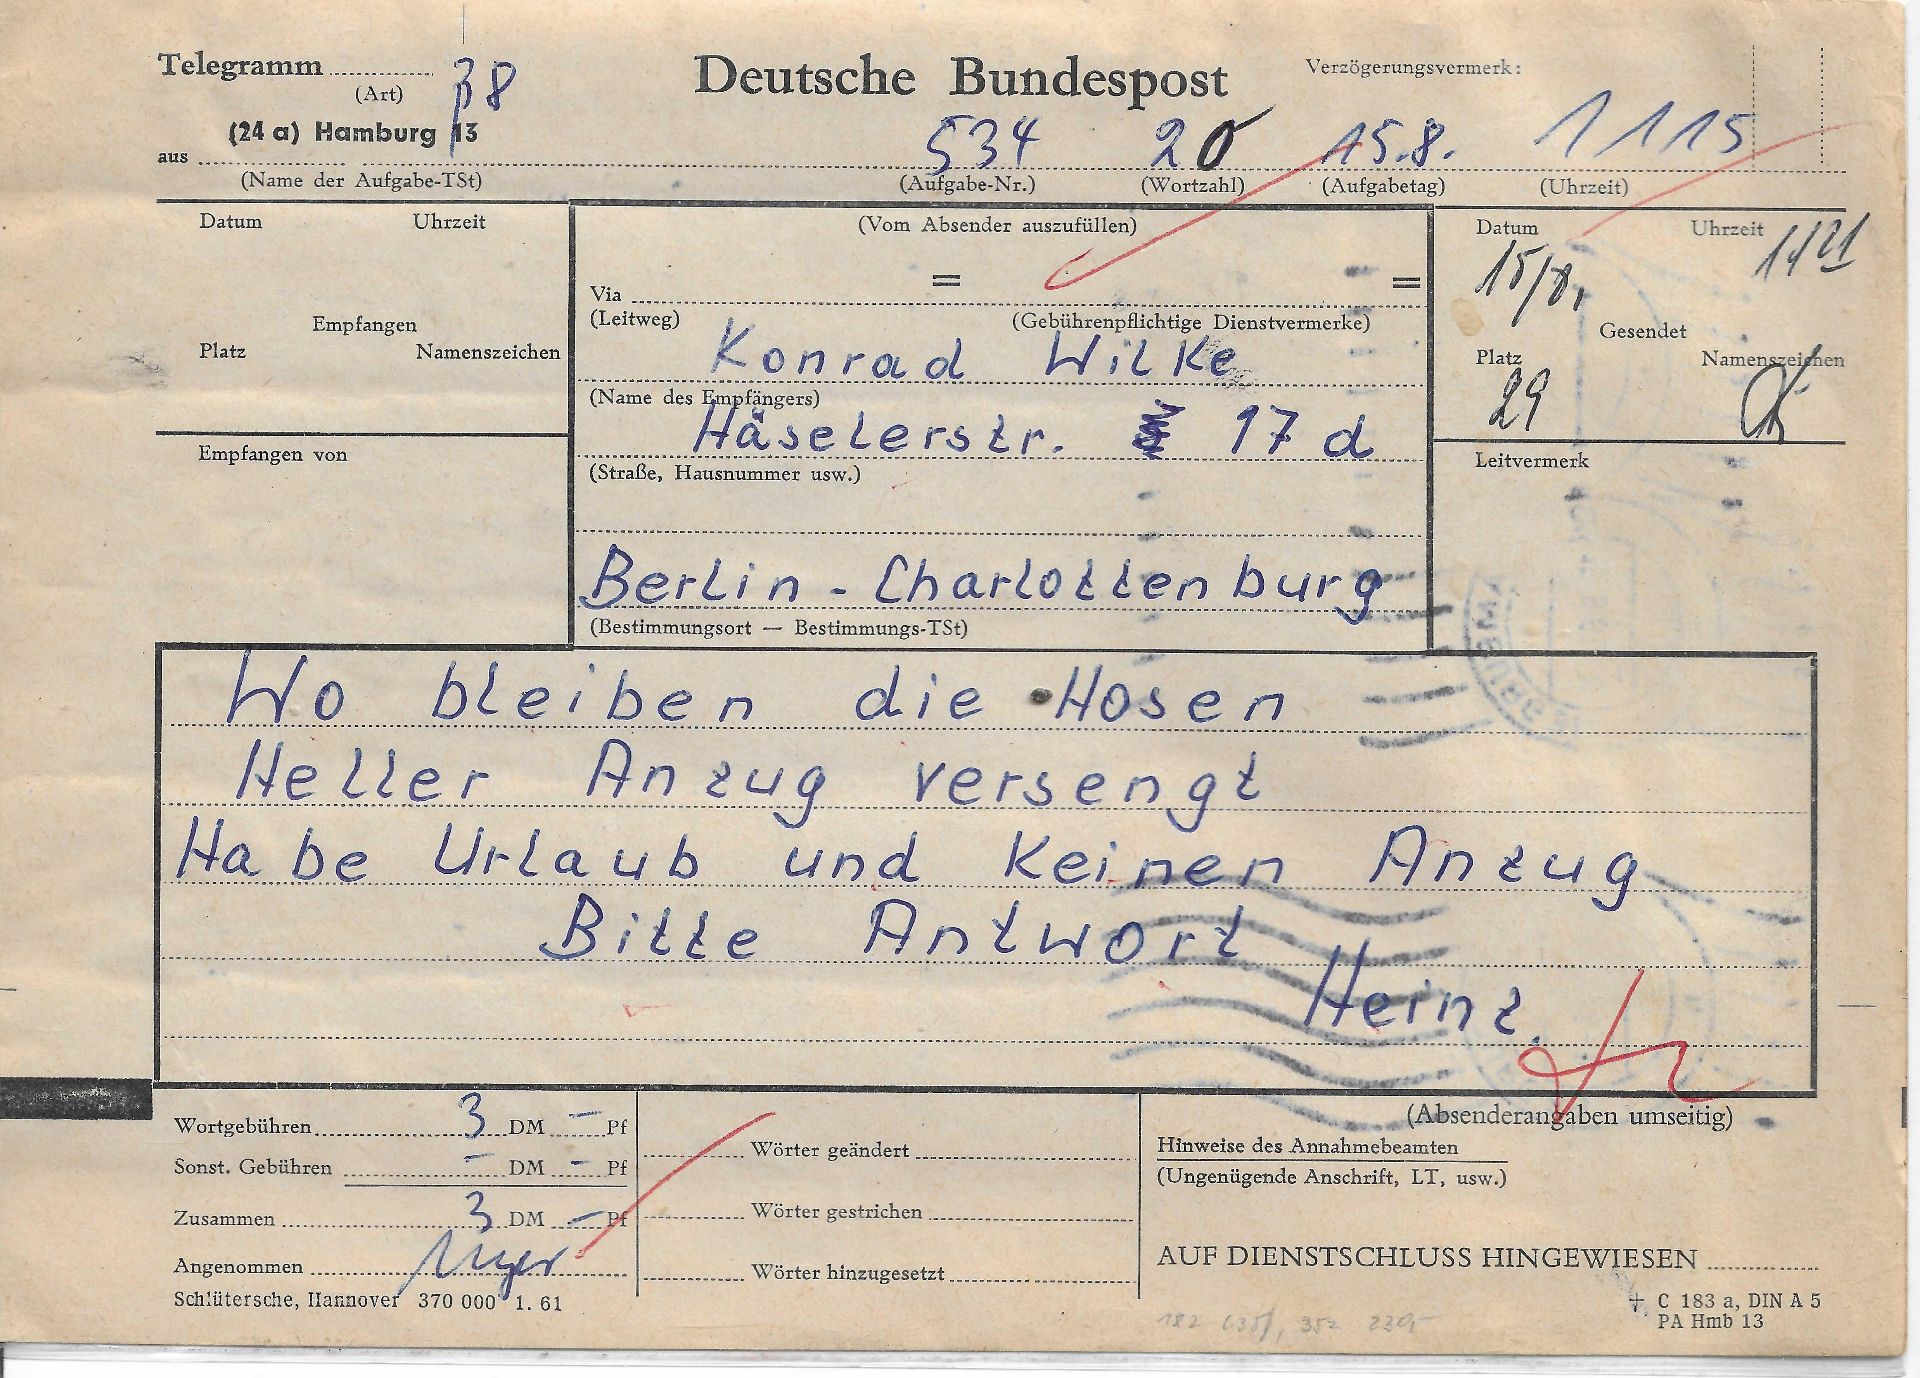 Telegramm
(Art)
Deutsche Bundespost
Verzögerungsvermerk:
(24 a) Hamburg 13
534 20 15.8. 11 15
aus
(Name der Aufgabe-TSt)
(Aufgabe-Nr.)
(Wortzahl)
(Aufgabetag)
(Uhrzeit)
Datum Uhrzeit
Empfangen
Platz Namenszeichen
Empfangen von
(Vom Absender auszufüllen)
= =
Via
(Leitweg)
(Gebührenpflichtige Dienstvermerke)
Konrad Wilke
(Name des Empfängers)
Häselerstr. 17 d
(Straße, Hausnummer usw.)
Berlin - Charlottenburg
(Bestimmungsort — Bestimmungs-TSt)
Datum Uhrzeit
15/8. 11 21
Gesendet
Platz Namenszeichen
29
Leitvermerk
Wo bleiben die Hosen
Heller Anzug versengt
Habe Urlaub und keinen Anzug
Bitte Antwort
Heinz.
(Absenderangaben umseitig)
Wortgebühren 3 DM - Pf
Sonst. Gebühren - DM - Pf
Zusammen 3 DM - Pf
Angenommen
Schlütersche, Hannover 370 000 1. 61
Wörter geändert
Wörter gestrichen
Wörter hinzugesetzt
Hinweise des Annahmebeamten
(Ungenügende Anschrift, LT, usw.)
AUF DIENSTSCHLUSS HINGEWIESEN
+ C 183 a, DIN A 5
PA Hmb 13